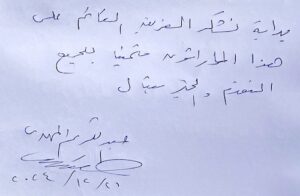 بداية نشكر الفريق القائم على
هذا الماراثون متمنيا للجميع
التقدم والخير
عبد الكريم المهدي
٢٠٢٤/١٢/٢١